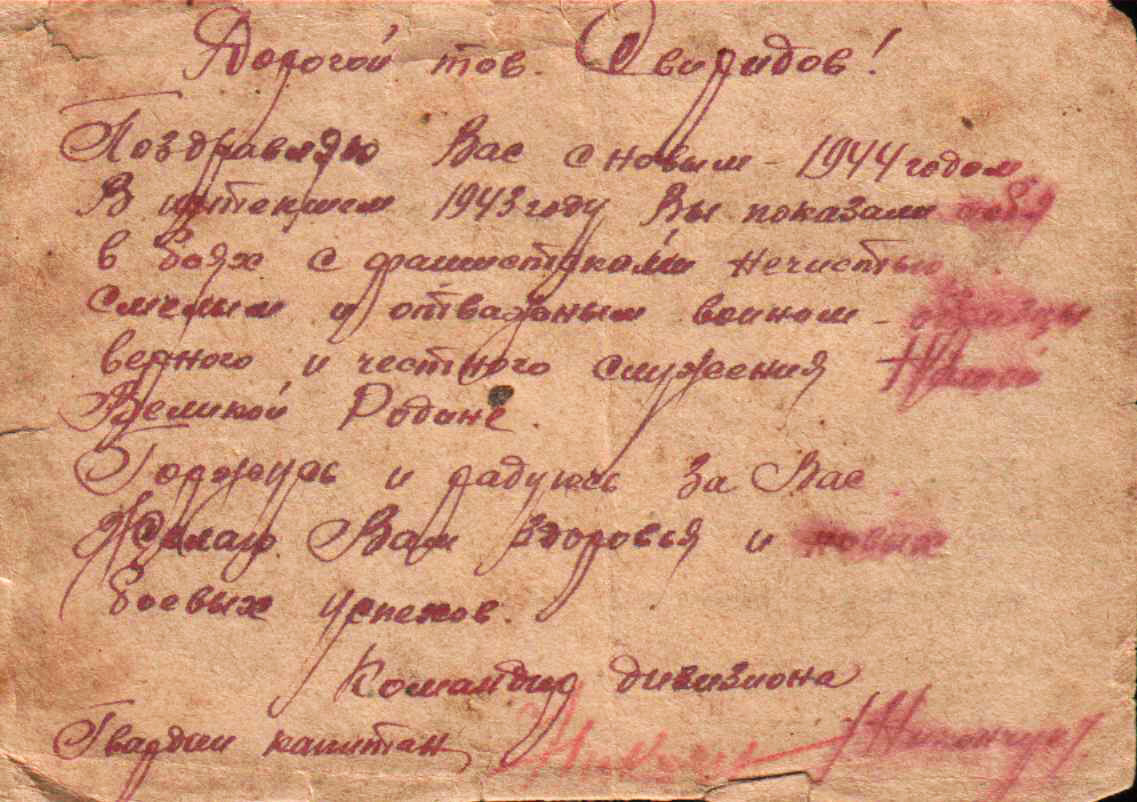 Дорогой тов. Свиридов!
Поздравляю Вас с новым - 1944 годом.
В истекшем 1943 году Вы показали себя
в боях с фашисткой нечистью
смелым и отважным воином - образцы
верного и честного служения Нашей
Великой Родине.
Горжусь и радуюсь за Вас.
Желаю Вам здоровья и новых
боевых успехов.
Командир дивизиона
Гвардии капитан